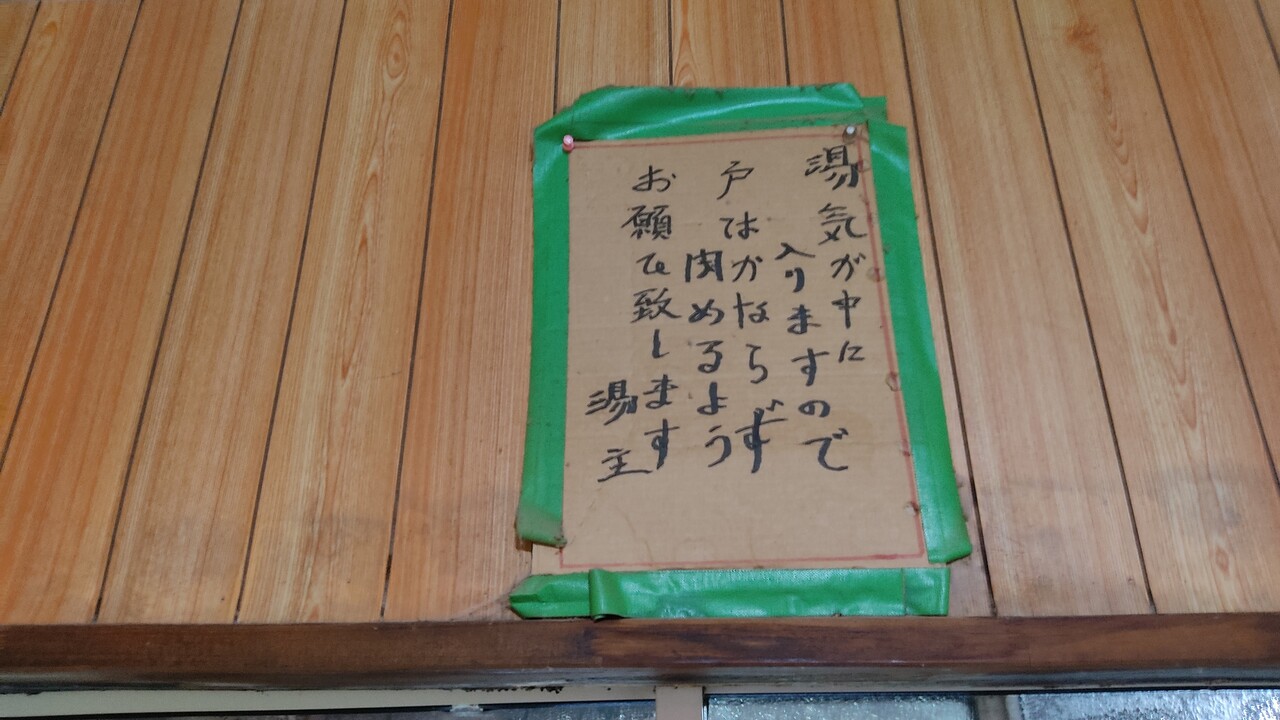 湯気が中に
入りますので
戸はかならず
閉めるよう
お願ひ致します
湯主